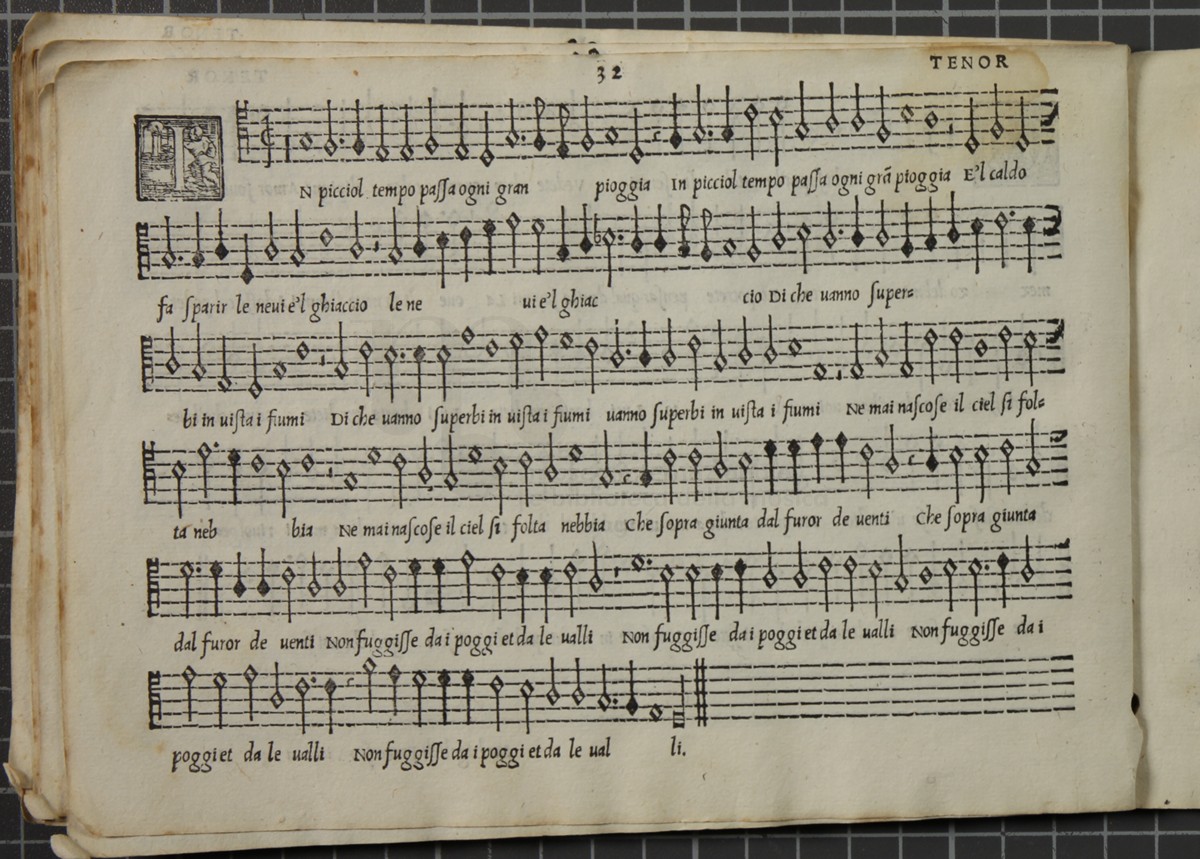 32
TENOR
IN picciol tempo paſſa ogni gran pioggia In picciol tempo paſſa ogni grã pioggia E'l caldo
fa ſparir le neui e'l ghiaccio le ne ui e'l ghiac cio Di che uanno ſuper=
bi in uiſta i fiumi Di che uanno ſuperbi in uiſta i fiumi uanno ſuperbi in uiſta i fiumi Ne mai naſcoſe il ciel ſi fol=
ta neb bia Ne mai naſcoſe il ciel ſi folta nebbia Che ſopra giunta dal furor de uenti Che ſopra giunta
dal furor de uenti Non fuggiſſe da i poggi et da le ualli Non fuggiſſe da i poggi et da le ualli Non fuggiſſe da i
poggi et da le ualli Non fuggiſſe da i poggi et da le ual li.